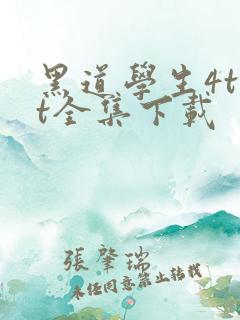 黑道學生4t
t全集下載
張肇瑞
未經同意禁止轉載